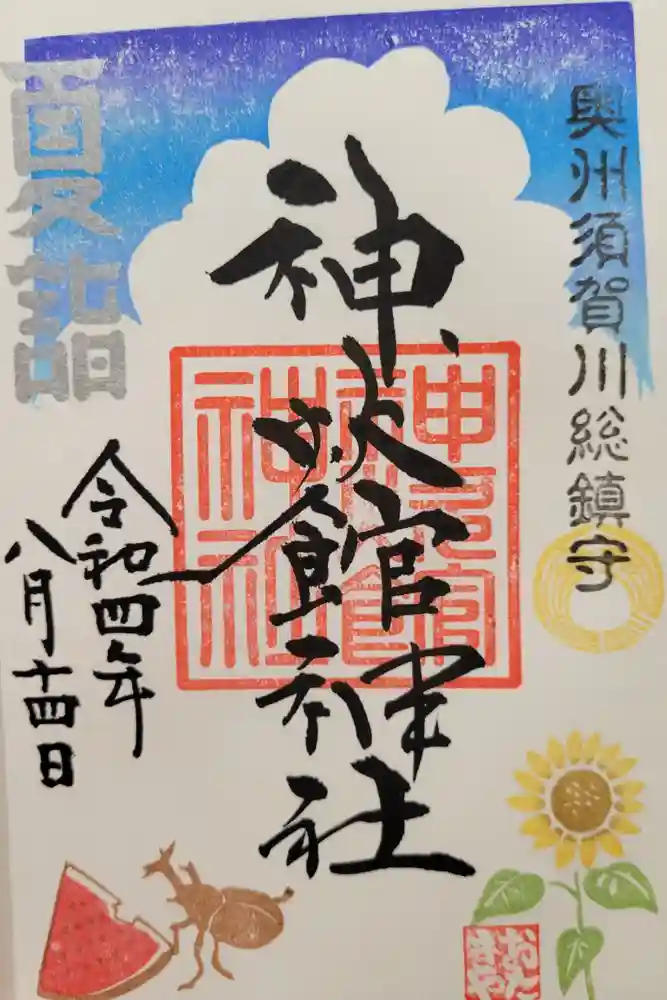 奥州須賀川総鎮守
神炊館神社
神炊館
神社
夏詣
令和四年
八月十四日
おた
きや